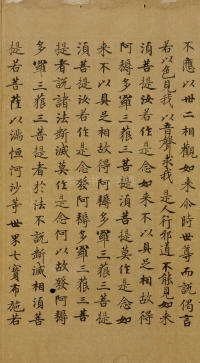 不應以卅二相觀如来尒時世尊而說偈言
若以色見我以音聲求我是人行邪道不能見如来
須菩提汝若作是念如来不以具足相故得
阿耨多羅三藐三菩提須菩提莫作是念如
来不以具足相故得阿耨多羅三藐三菩提
須菩提汝若作是念發阿耨多羅三藐三菩
提者說諸法斷滅莫作是念何以故發阿耨
多羅三藐三菩提者於法不說斷滅相須菩
提若菩薩以滿恒河沙等世界七寶布施若